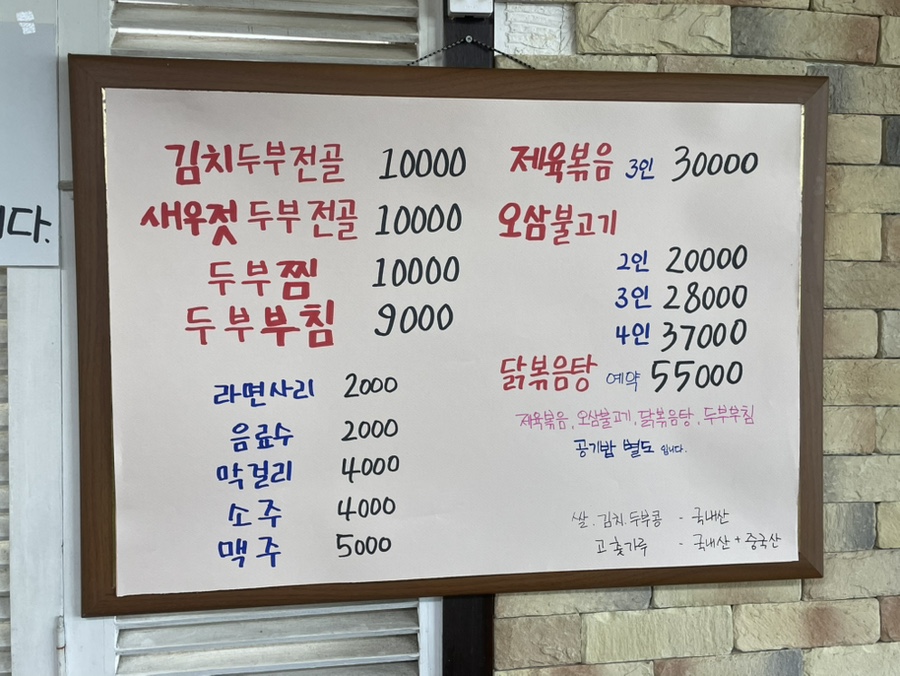 김치두부전골 10000
새우젓 두부전골 10000
두부찜 10000
두부부침 9000
라면사리 2000
음료수 2000
막걸리 4000
소주 4000
맥주 5000
제육볶음 3인 30000
오삼불고기
2인 20000
3인 28000
4인 37000
닭볶음탕 예약 55000
제육볶음, 오삼불고기, 닭볶음탕, 두부부침
공기밥 별도 입니다.
쌀.김치.두부콩 - 국내산
고춧가루 - 국내산 + 중국산
다.